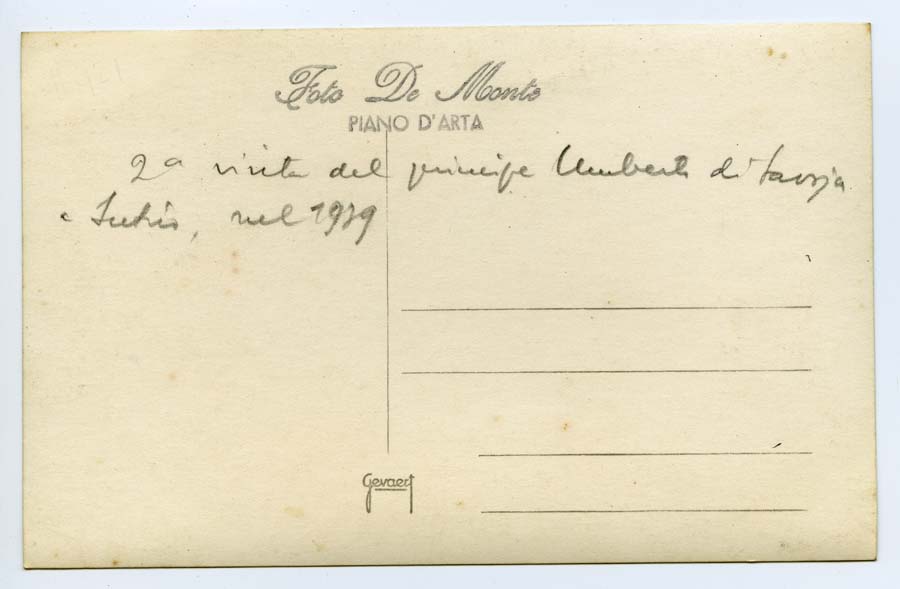 Foto De Monte
PIANO D'ARTA
2ª visita del principe Umberto di Savoja
a Sutrio, nel 1939
Gevaert